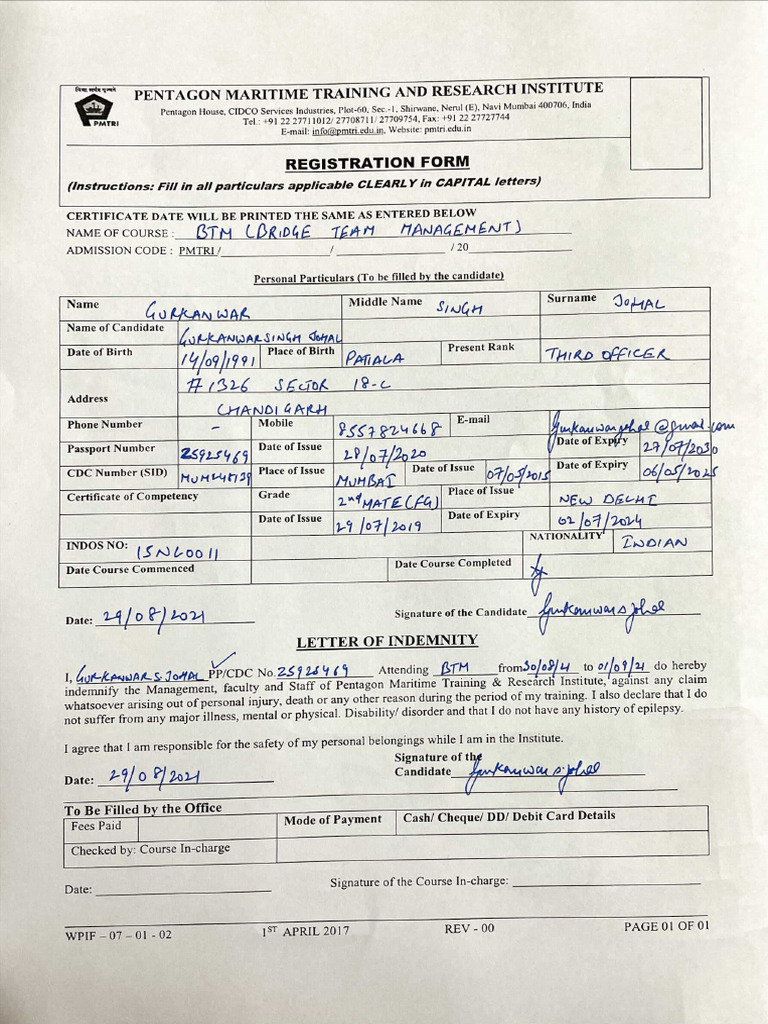 PENTAGON MARITIME TRAINING AND RESEARCH INSTITUTE
PMTRI
Pentagon House, CIDCO Services Industries, Plot-60, Sec.-1, Shirwane, Nerul (E), Navi Mumbai 400706, India
Tel.: +91 22 27711012/ 27708711/ 27709754, Fax: +91 22 27727744
E-mail: info@pmtri.edu.in, Website: pmtri.edu.in
REGISTRATION FORM
(Instructions: Fill in all particulars applicable CLEARLY in CAPITAL letters)
CERTIFICATE DATE WILL BE PRINTED THE SAME AS ENTERED BELOW
NAME OF COURSE : BTM (BRIDGE TEAM MANAGEMENT)
ADMISSION CODE : PMTRI / / / 20
Personal Particulars (To be filled by the candidate)
Name GURKANWAR Middle Name SINGH Surname JOHAL
Name of Candidate GURKANWAR SINGH JOHAL
Date of Birth 14/09/1991 Place of Birth PATIALA Present Rank THIRD OFFICER
Address #1326 SECTOR 18-C
CHANDIGARH
Phone Number - Mobile 8557824668 E-mail
Passport Number Z5925469 Date of Issue 28/07/2020 Date of Expiry 27/07/2030
CDC Number (SID) Place of Issue MUMBAI Date of Issue 07/05/2015 Date of Expiry 06/05/2025
Certificate of Competency Grade 2nd MATE (FG) Place of Issue NEW DELHI
Date of Issue 29/07/2019 Date of Expiry 02/07/2024
INDOS NO: 15NL0011 NATIONALITY INDIAN
Date Course Commenced Date Course Completed
Date: 29/08/2021 Signature of the Candidate Gurkanwar s johal
LETTER OF INDEMNITY
I, GURKANWAR S. JOHAL PP/CDC No. Z5925469 Attending BTM from 30/08/21 to 01/09/21 do hereby
indemnify the Management, faculty and Staff of Pentagon Maritime Training & Research Institute, against any claim
whatsoever arising out of personal injury, death or any other reason during the period of my training. I also declare that I do
not suffer from any major illness, mental or physical. Disability/ disorder and that I do not have any history of epilepsy.
I agree that I am responsible for the safety of my personal belongings while I am in the Institute.
Signature of the
Date: 29/08/2021 Candidate Gurkanwar s. johal
To Be Filled by the Office
Fees Paid Mode of Payment Cash/ Cheque/ DD/ Debit Card Details
Checked by: Course In-charge
Date: Signature of the Course In-charge:
WPIF – 07 – 01 - 02 1ST APRIL 2017 REV - 00 PAGE 01 OF 01